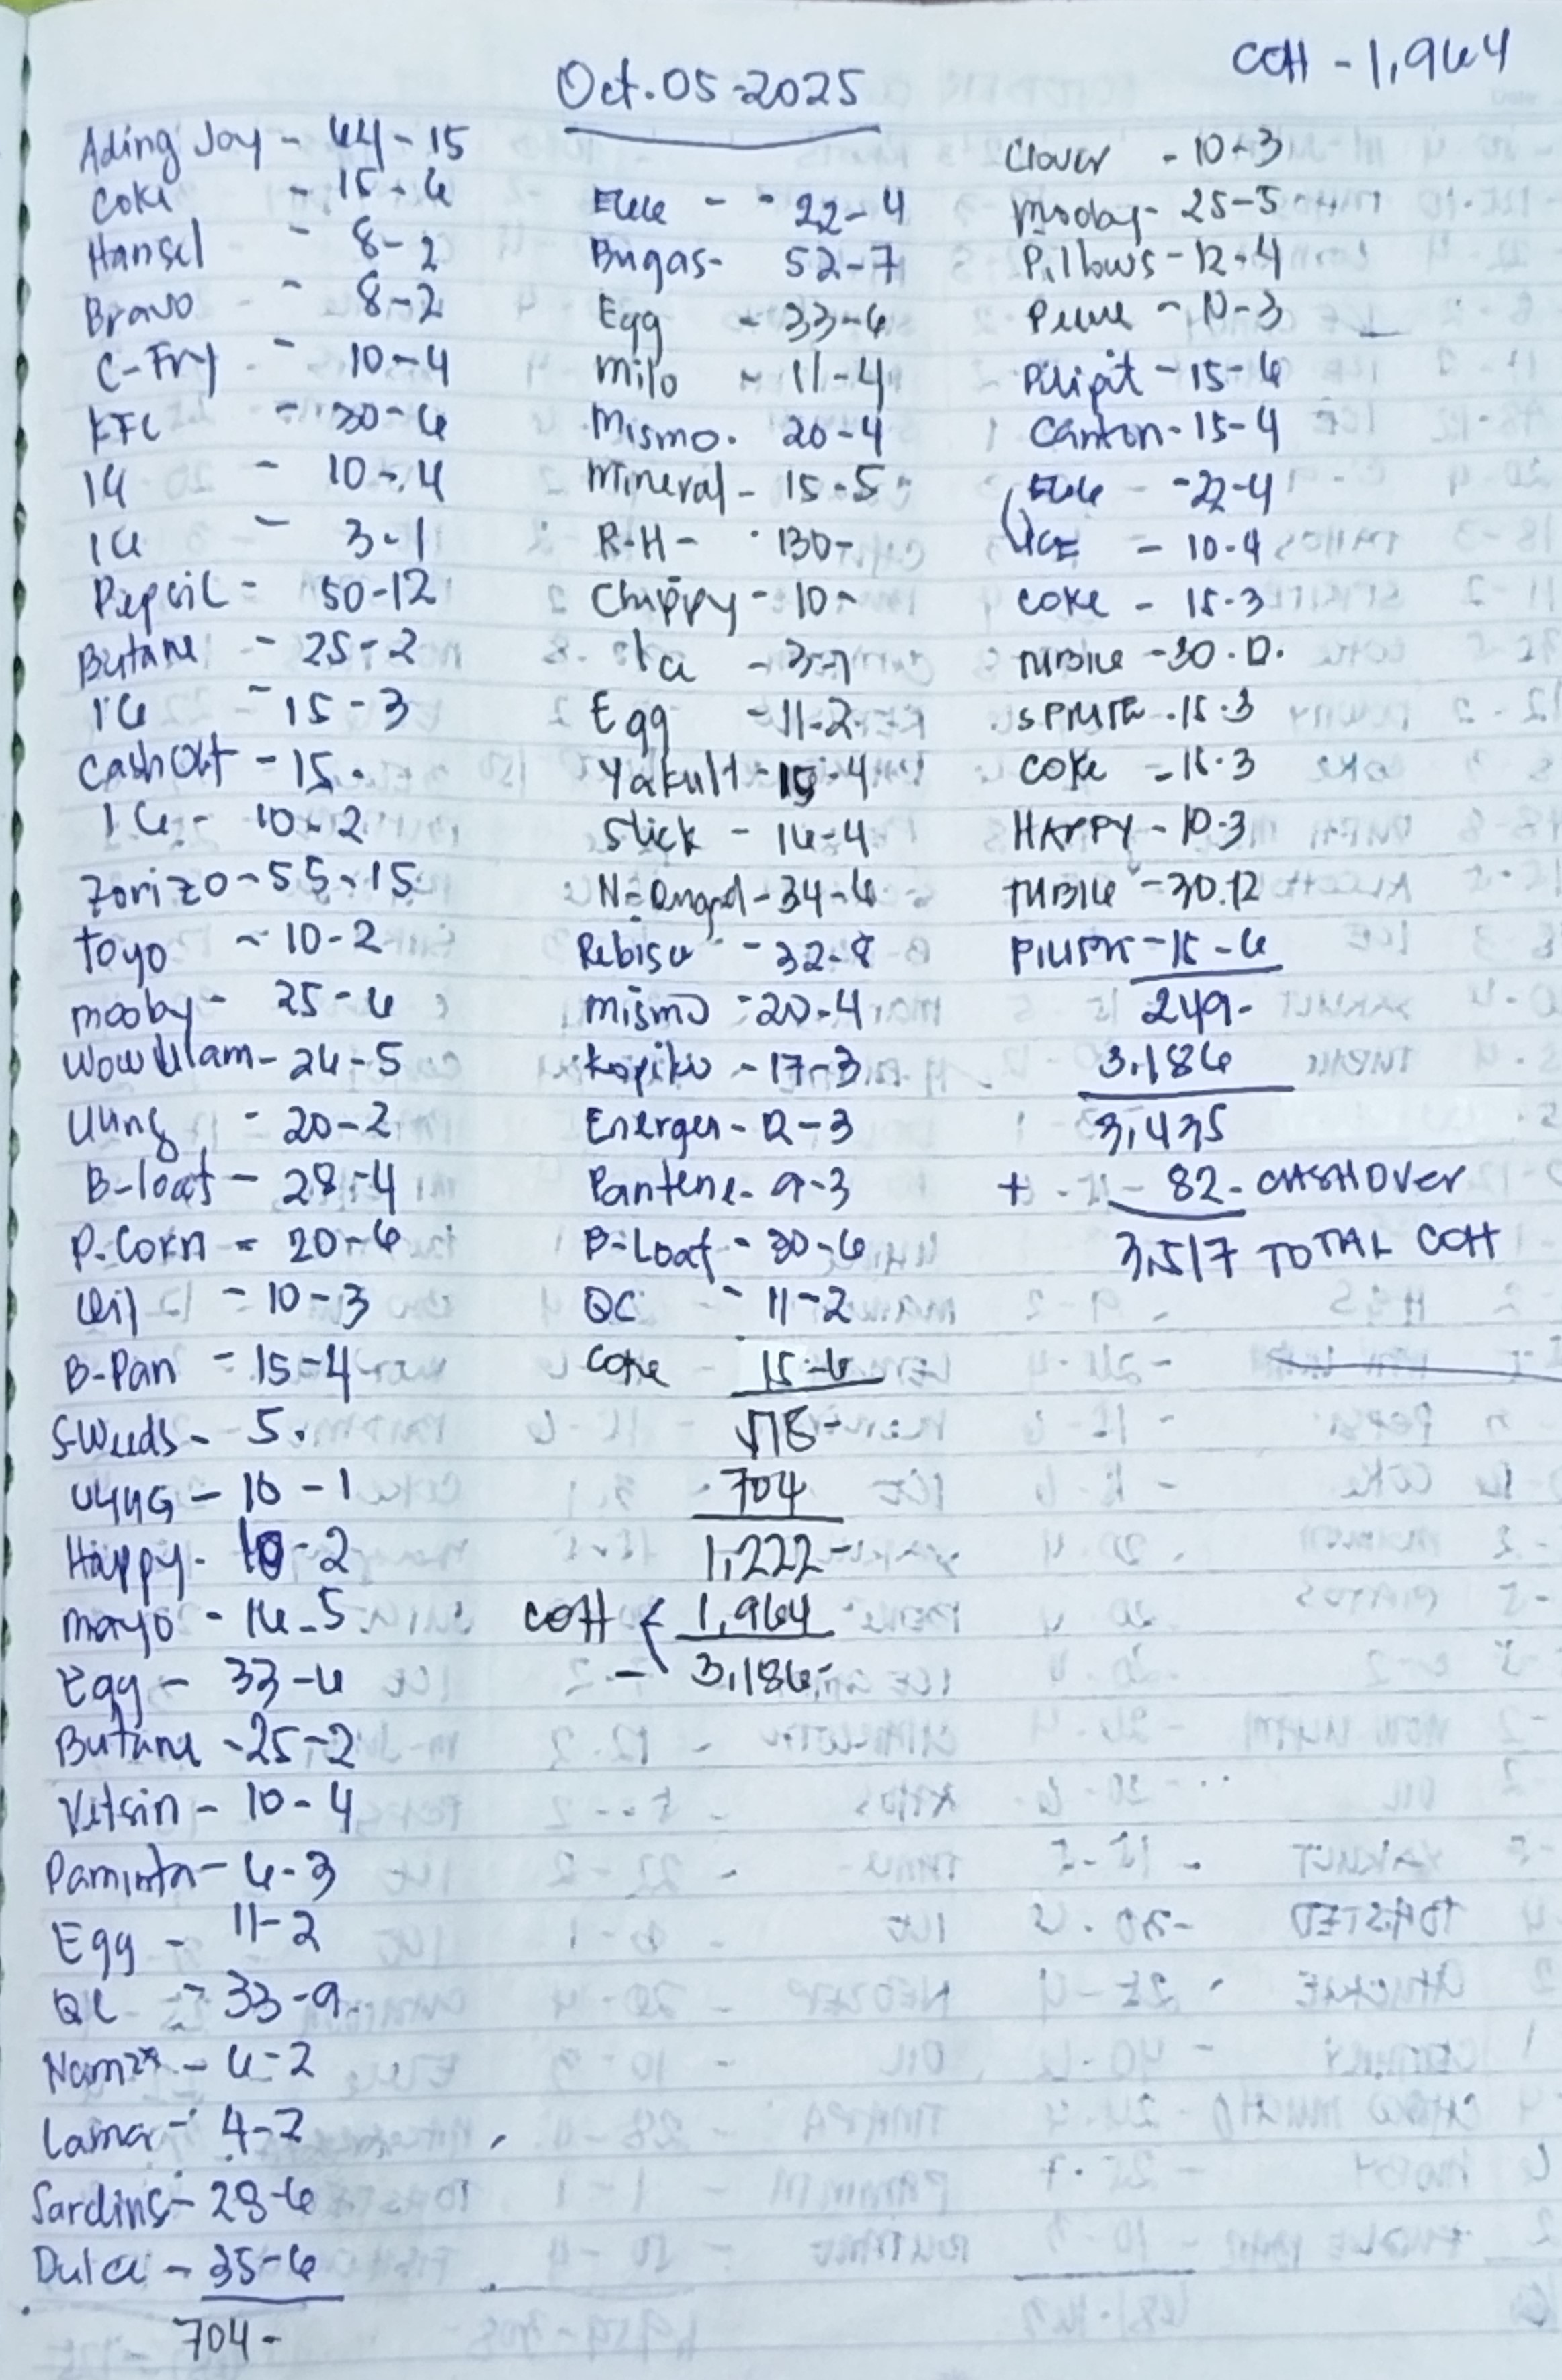 COH - 1,964
Oct. 05-2025
Ading Joy - 64 - 15
Coke - 15 - 6
Hansel - 8 - 2
Bravo - 8 - 2
C-Fry - 10 - 4
KFC - 30 - 6
- 10 - 4
- 3 - 1
Pepsi L = 50 - 12
Butane - 25 - 2
- 15 - 3
Cash Out - 15 -
- 10 - 2
Zorizo - 55 - 15
toyo - 10 - 2
mooby - 25 - 6
Wow Ulam - 26 - 5
Uling - 20 - 2
B-loaf - 28 - 4
P. Corn - 20 - 6
Oil - 10 - 3
B-Pan - 15 - 4
- 5.
- 10 - 1
Happy - 10 - 2
mayo - 16 - 5
Egg - 33 - 6
Butane - 25 - 2
Vetsin - 10 - 4
Paminta - 6 - 3
Egg - 11 - 2
QC - 33 - 9
- 6 - 2
- 4 - 2
Sardins - 28 - 6
Dulce - 35 - 6
704 -
- 22 - 4
Bugas - 52 - 7
Egg - 33 - 6
milo - 11 - 4
Mismo - 20 - 4
Mineral - 15 - 5
R-H - 130 -
Chippy - 10 -
- 3 - 1
Egg - 11 - 2
Yakult - 15 - 4
Stick - 16 - 4
- 34 - 6
Rebisu - 32 - 8
mismo - 20 - 4
Kopiko - 17 - 3
Energen - 12 - 3
Pantene - 9 - 3
B-Loaf - 30 - 6
QC - 11 - 2
Coke 15 - 6
518 -
704
1,222 -
COH < 1,964
- 3,186 -
Clover - 10 - 3
mooby - 25 - 5
Pillows - 12 - 4
- 10 - 3
Pilipit - 15 - 6
Canton - 15 - 4
- 22 - 4
ICE - 10 - 4
COKE - 15 - 3
TUBIG - 30 . 12.
SPRITE - 15 . 3
COKE - 15 . 3
HAPPY - 10 - 3
TUBIG - 30 . 12
- 15 - 6
249 -
3,186
3,435
+ 82 - CASHOVER
3,517 TOTAL COH